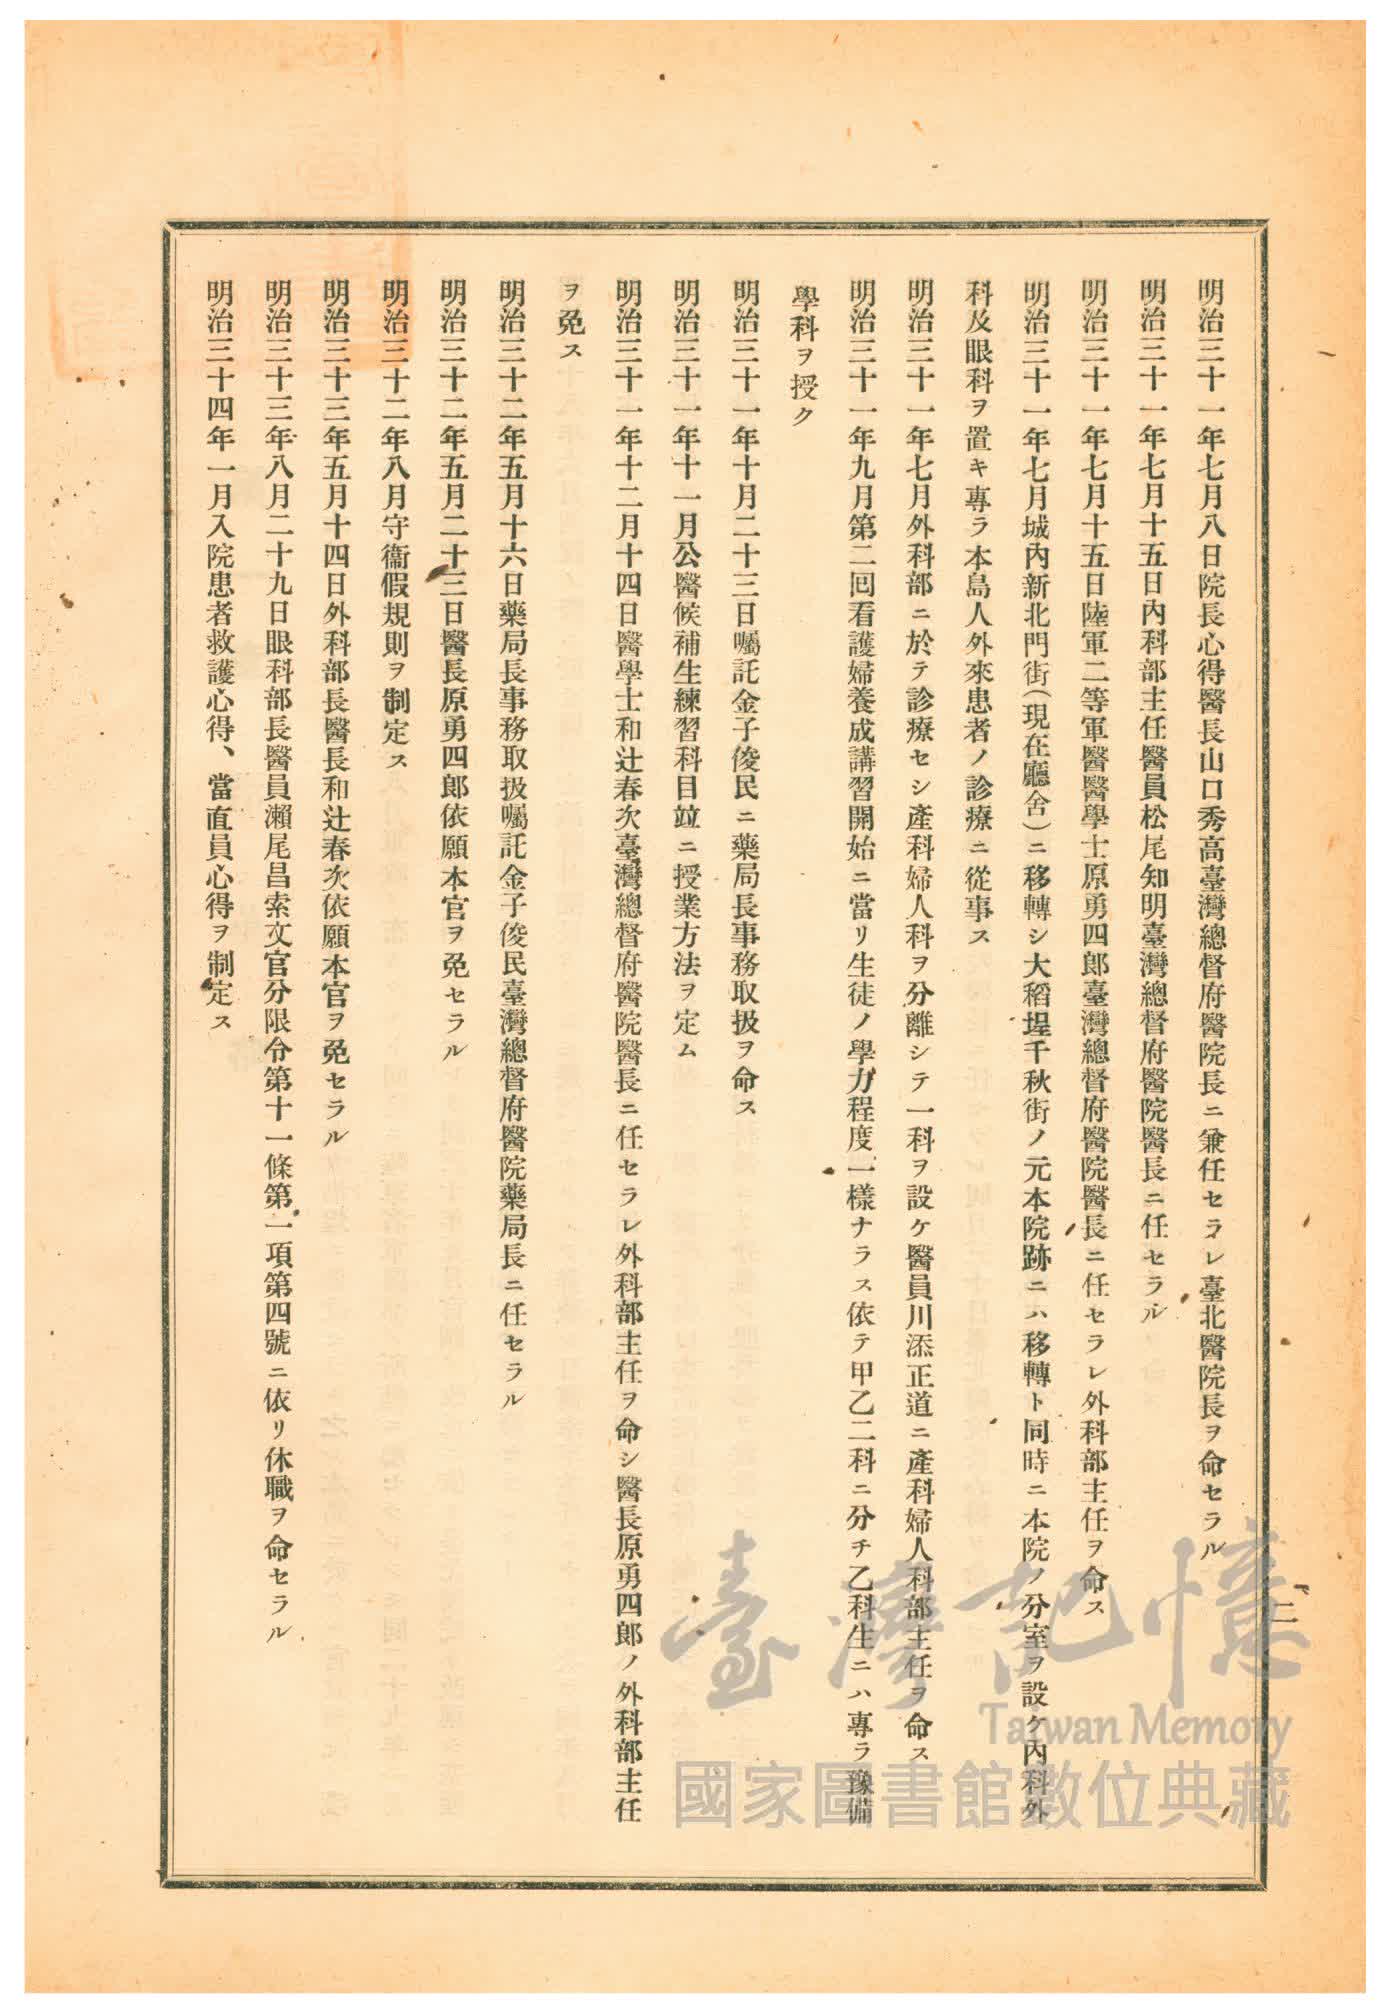 明治三十一年七月八日院長心得醫長山口秀高臺灣總督府醫院長ニ兼任セラレ臺北醫院長ヲ命セラル
明治三十一年七月十五日內科部主任醫員松尾知明臺灣總督府醫院醫長ニ任セラル
明治三十一年七月十五日陸軍二等軍醫醫學士原勇四郎臺灣總督府醫院醫長ニ任セラレ外科部主任ヲ命ス
明治三十一年七月城內新北門街(現在廳舍)ニ移轉シ大稻埕千秋街ノ元本院跡ニハ移轉ト同時ニ本院ノ分室ヲ設ケ內科外
科及眼科ヲ置キ專ラ本島人外來患者ノ診療ニ從事ス
明治三十一年七月外科部ニ於テ診療セシ產科婦人科ヲ分離シテ一科ヲ設ケ醫員川添正道ニ產科婦人科部主任ヲ命ス
明治三十一年九月第二回看護婦養成講習開始ニ當リ生徒ノ學力程度一樣ナラス依テ甲乙二科ニ分チ乙科生ニハ專ラ豫備
學科ヲ授ク
明治三十一年十月二十三日囑託金子俊民ニ藥局長事務取扱ヲ命ス
明治三十一年十一月公醫候補生練習科目竝ニ授業方法ヲ定ム
明治三十一年十二月十四日醫學士和辻春次臺灣總督府醫院醫長ニ任セラレ外科部主任ヲ命シ醫長原勇四郎ノ外科部主任
ヲ免ス
明治三十二年五月十六日藥局長事務取扱囑託金子俊民臺灣總督府醫院藥局長ニ任セラル
明治三十二年五月二十三日醫長原勇四郎依願本官ヲ免セラル
明治三十二年八月守衞假規則ヲ制定ス
明治三十三年五月十四日外科部長醫長和辻春次依願本官ヲ免セラル
明治三十三年八月二十九日眼科部長醫員瀨尾昌索文官分限令第十一條第一項第四號ニ依リ休職ヲ命セラル
明治三十四年一月入院患者救護心得、當直員心得ヲ制定ス
二
臺灣記憶
Taiwan Memory
國家圖書館數位典藏